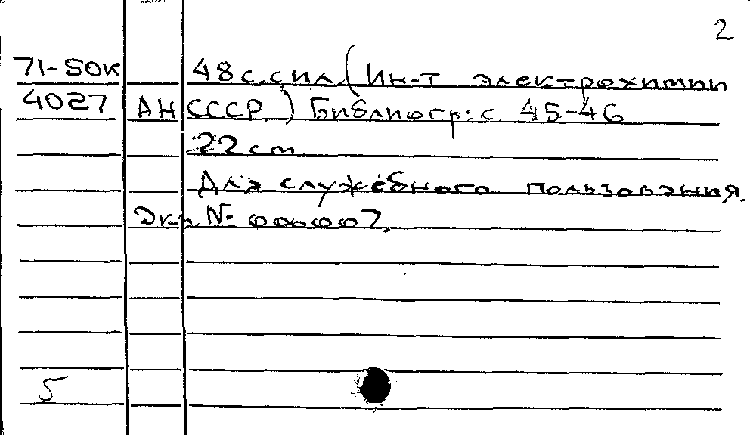 2
71-SOK 48 с. с ил. (Ин-т электрохимии
4027 АН СССР.) Библиогр: с. 45-46
22 cm
Для служебного пользования.
Экз. № 000007.
5